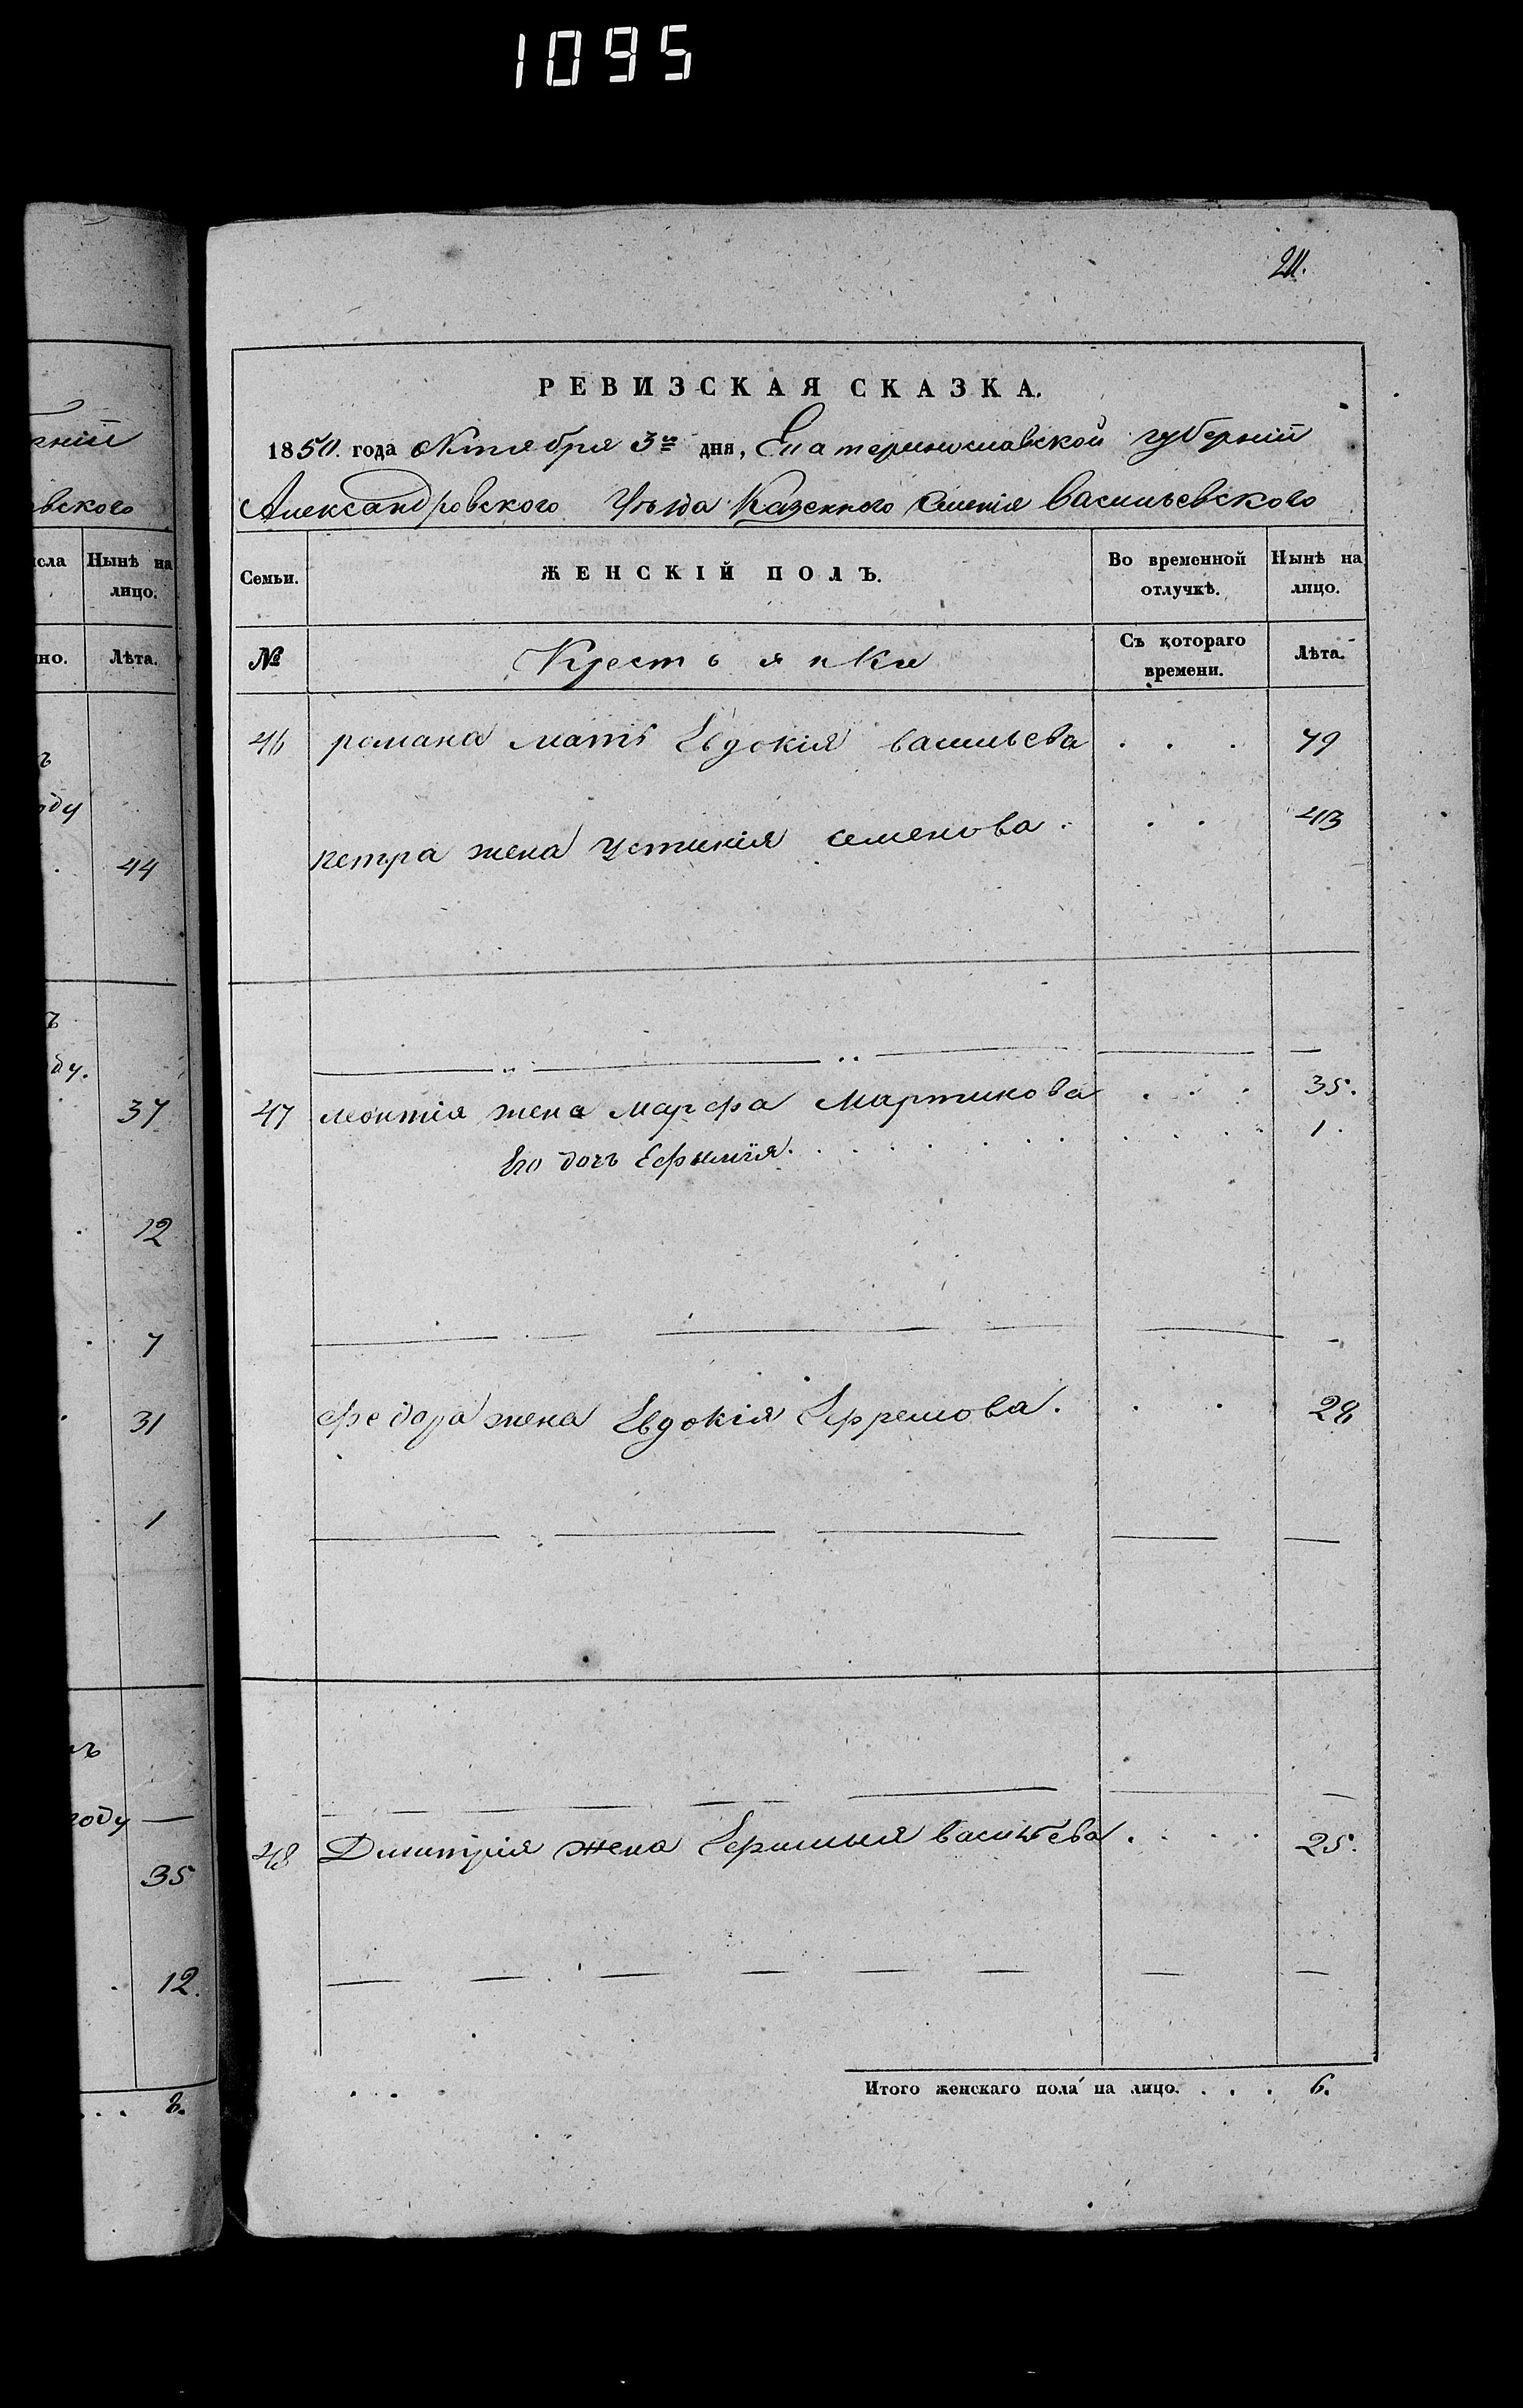 1095
21.
РЕВИЗСКАЯ СКАЗКА.
1850. года Октября 3го дня, Екатеринославской губерніи
Александровского Уѣзда Казенного Имѣнія Васильевского
Семьи. ЖЕНСКІЙ ПОЛЪ. Во временной отлучкѣ. Нынѣ на лицо.
№ Крестьянки Съ котораго времени. Лѣта.
46 романа мать Евдокія васильева . . . 79
петра жена Устинія семенова . . . 43
47 леонтія жена Марфа Мартинова . . . 35.
Его дочь Ефимія. . . . . . . . . . 1.
федора жена Евдокія Ефремова. . . 28
48 Димитрія жена Ефимия васильева . . . . 25.
Итого женскаго пола на лицо. . . . 6.
рніи
овского
сла Нынѣ на лицо.
но. Лѣта.
ъ
оду
. 44
ъ
ду.
37
. 12
. 7
. 31
. 1
ъ
году —
35
. 12.
. . . 8.